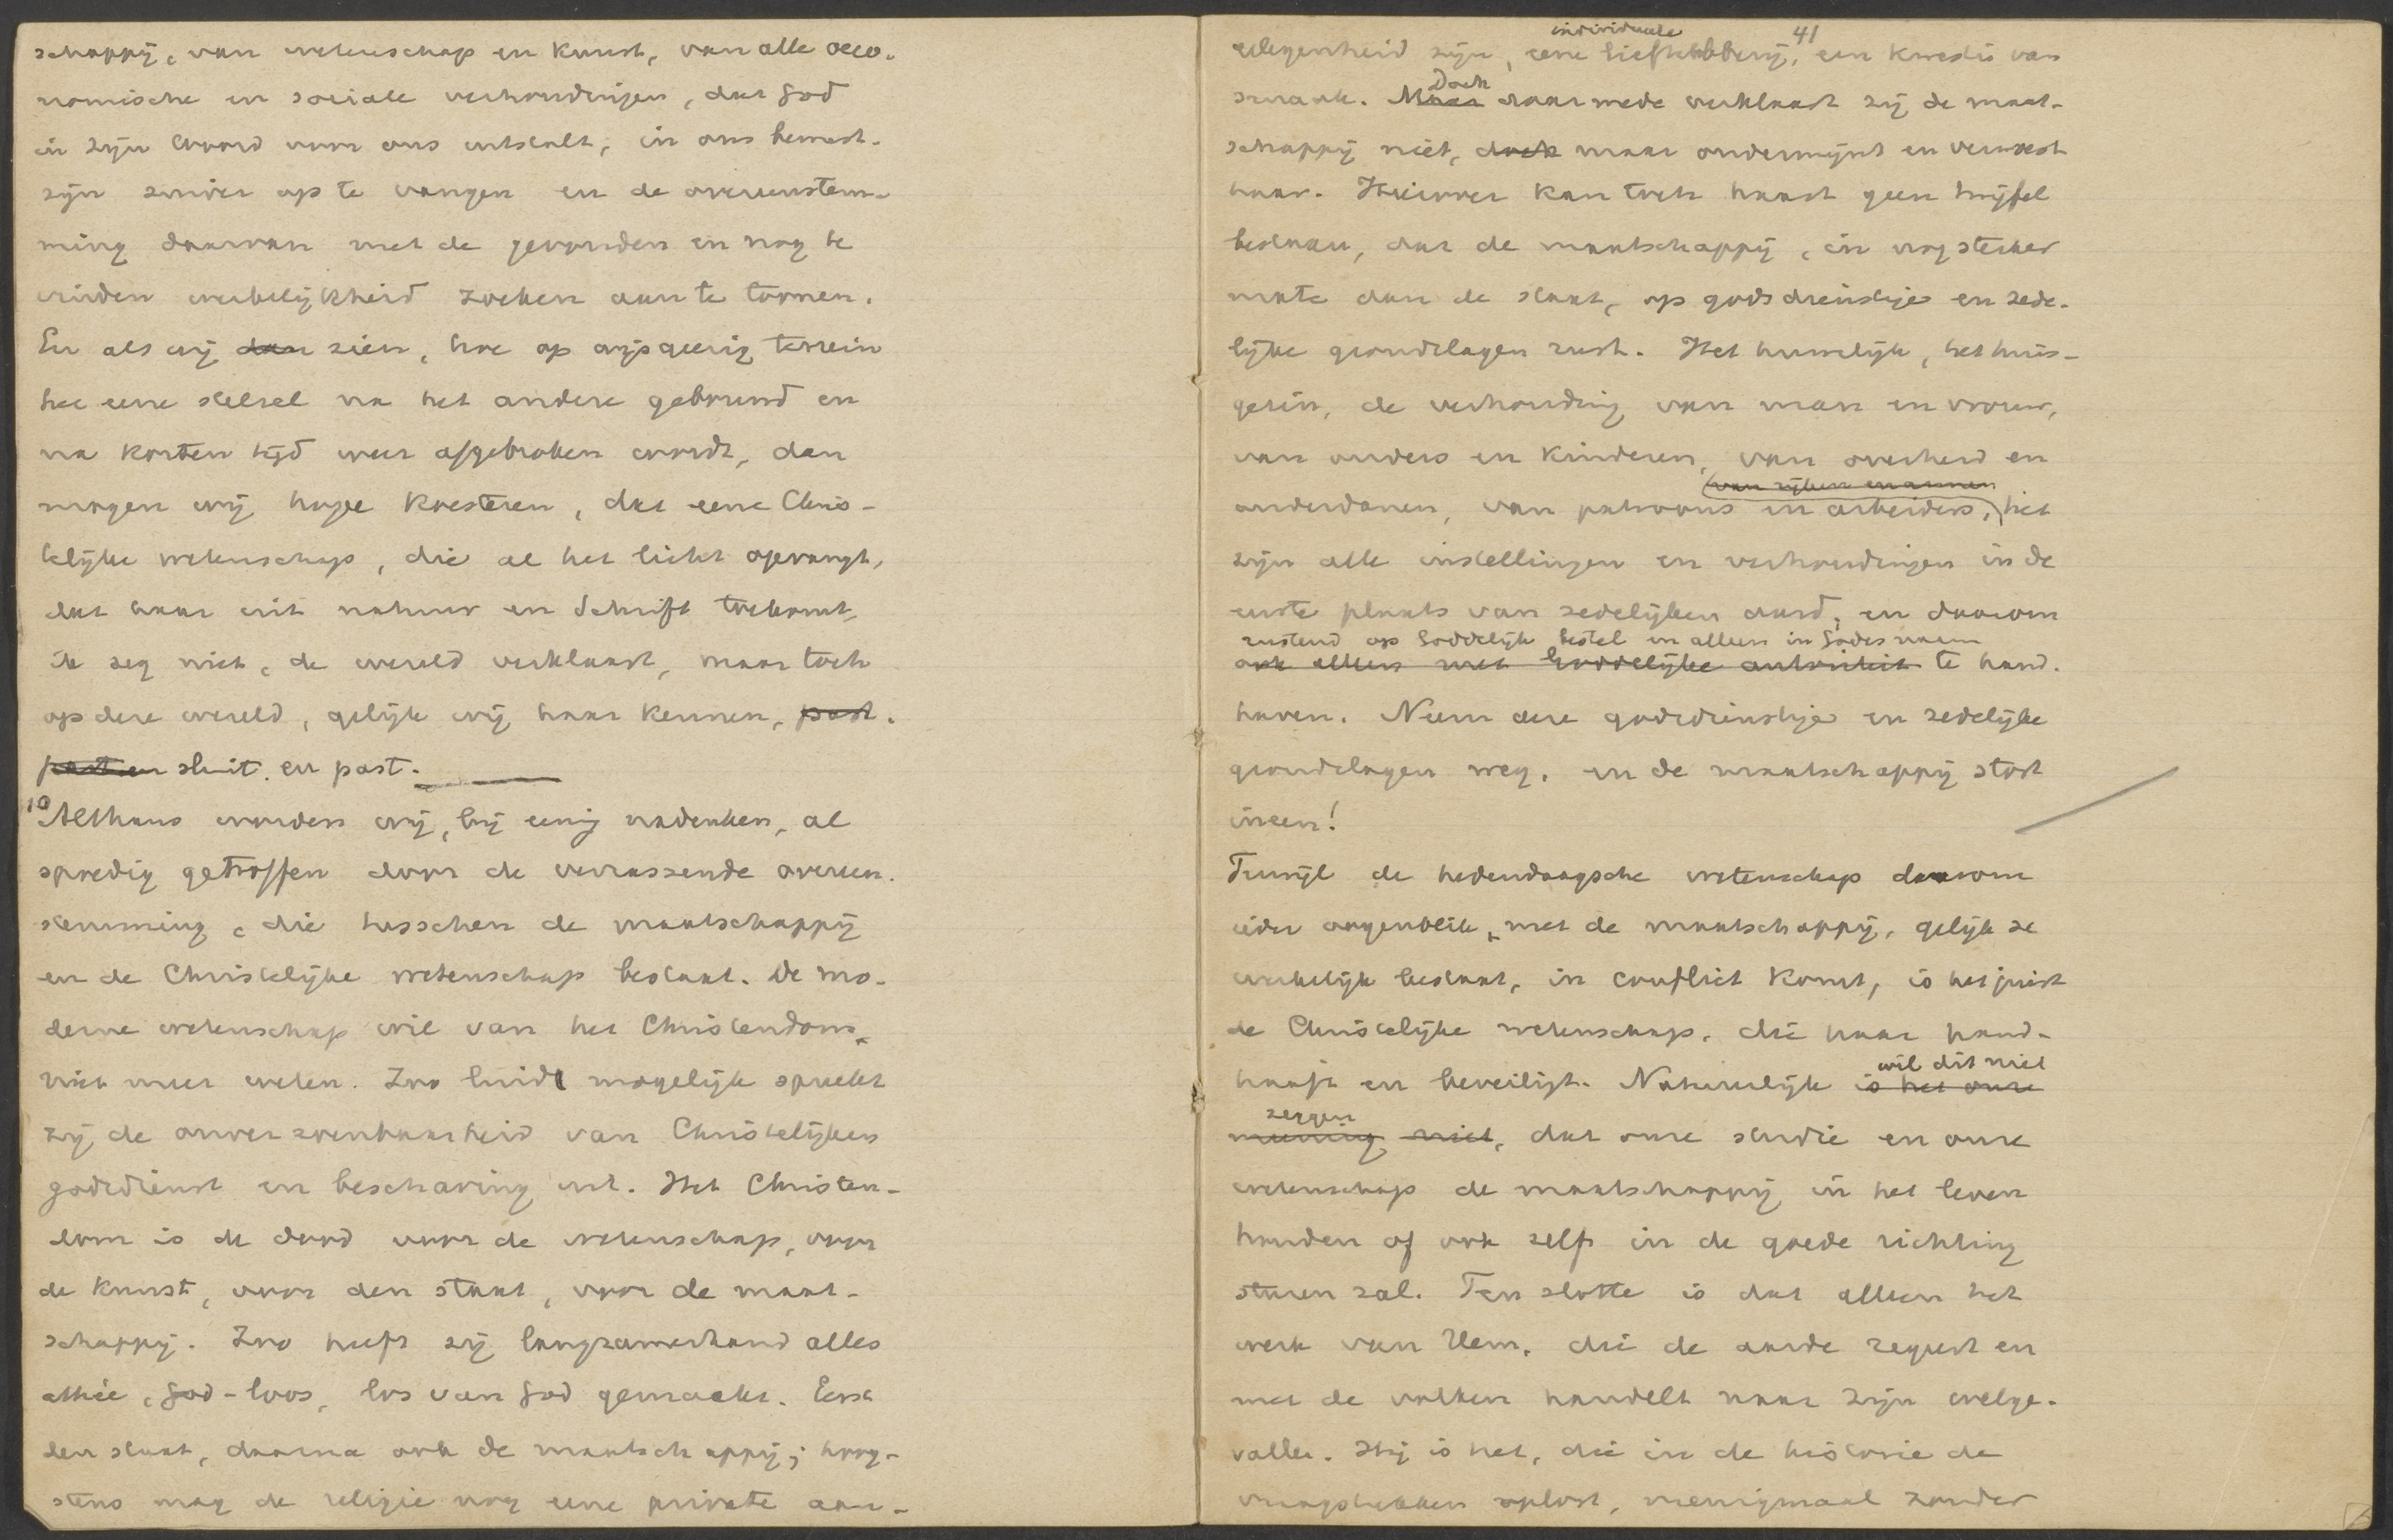 schappij, van wetenschap en kunst, van alle oeco-
nomische en sociale verhoudingen, dat God
in zijn Woord voor ons ontsluit, in ons bewust-
zijn zuiver op te vangen en de overeenstem-
ming daarvan met de gevonden en nog te
vinden werkelijkheid zoeken aan te toonen.
En als wij dan zien, hoe op wijsgeerig terrein
het eene stelsel na het andere gebouwd en
na korten tijd weer afgebroken wordt, dan
mogen wij hope koesteren, dat eene Chris-
telijke wetenschap, die al het licht opvangt,
dat haar uit natuur en Schrift toekomt,
ik zeg niet, de wereld verklaart, maar toch
op deze wereld, gelijk wij haar kennen, past.
past en sluit en past.
10 Althans worden wij, bij eenig nadenken, al
spoedig getroffen door de verrassende overeen-
stemming, die tusschen de maatschappij
en de Christelijke wetenschap bestaat. De mo-
derne wetenschap wil van het Christendom
niet meer weten. Zoo luid mogelijk spreekt
zij de onverzoenbaarheid van Christelijken
godsdienst en beschaving uit. Het Christen-
dom is de dood voor de wetenschap, voor
de kunst, voor den staat, voor de maat-
schappij. Zoo heeft zij langzamerhand alles
athée, God-loos, los van God gemaakt. Eerst
den staat, daarna ook de maatschappij; hoog-
stens mag de religie nog eene private aan-
41
individueele
gelegenheid zijn, eene liefhebberij, een kwestie van
Doch
smaak. Maar daarmede verklaart zij de maat-
schappij niet, doch maar ondermijnt en verwoest
haar. Hierover kan toch haast geen twijfel
bestaan, dat de maatschappij, in nog sterker
mate dan de staat, op godsdienstige en zede-
lijke grondslagen rust. Het huwelijk, het huis-
gezin, de verhouding van man en vrouw,
van ouders en kinderen, van overheid en
van rijken en armen
onderdanen, van patroons en arbeiders, het
zijn alle instellingen en verhoudingen in de
eerste plaats van zedelijken aard, en daarom
rustend op Goddelijk bestel en alleen in Gods naam
ook alleen met Goddelijke autoriteit te hand-
haven. Neem deze godsdienstige en zedelijke
grondslagen weg, en de maatschappij stort
ineen!
Terwijl de hedendaagsche wetenschap daarom
ieder oogenblik met de maatschappij, gelijk ze
werkelijk bestaat, in conflict komt, is het juist
de Christelijke wetenschap, die haar hand-
wil dit niet
haaft en beveiligt. Natuurlijk is het onze
zeggen
meening niet, dat onze studie en onze
wetenschap de maatschappij in het leven
houden of ook zelfs in de goede richting
sturen zal. Ten slotte is dat alleen het
werk van Hem, die de aarde regeert en
met de volken handelt naar zijn welge-
vallen. Hij is het, die in de historie de
vraagstukken oplost, menigmaal zonder